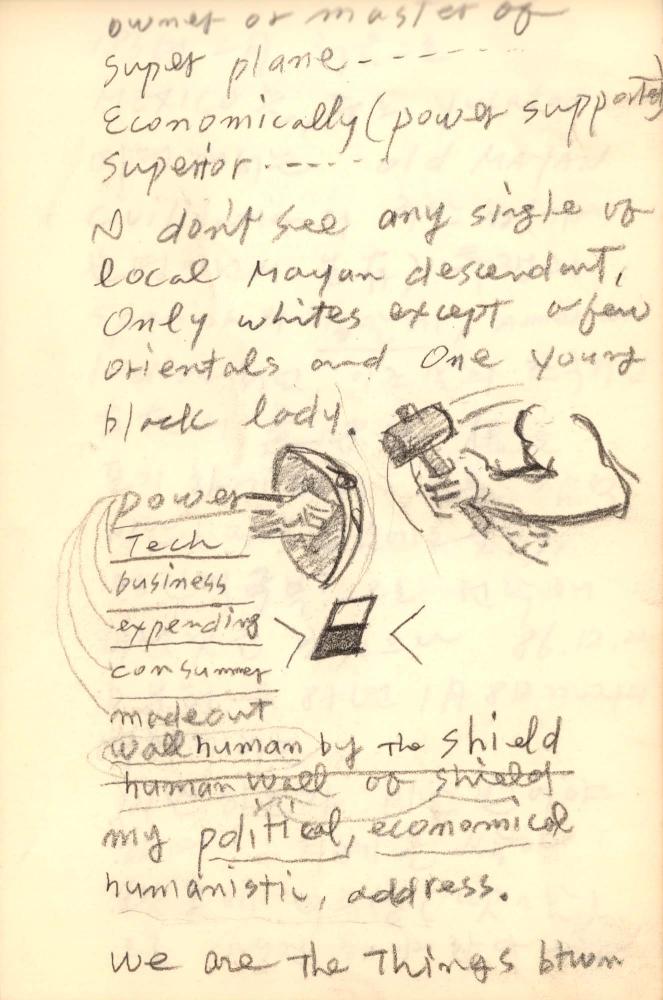 owner or master of
super plane - - - - - -
Economically (power supported)
superior - - - - -
I don't see any single of
local Mayan descendant,
Only whites except a few
orientals and One young
black lady.
power
Tech
business
expending
consumer
madeout
wall human by The shield
human wall of shield
my political, economical
humanistic, address.
we are The Things btwn